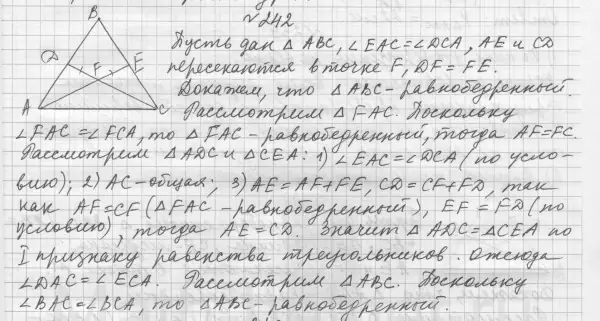 №242
B
Пусть дан △ ABC, ∠EAC=∠DCA, AE и CD
D
F
E
пересекаются в точке F, DF = FE.
Докажем, что △ ABC - равнобедренный.
A
C
Рассмотрим △ FAC. Поскольку
∠FAC=∠FCA, то △ FAC - равнобедренный, тогда AF=FC.
Рассмотрим △ADC и △CEA: 1) ∠EAC=∠DCA (по усло-
вию); 2) AC - общая; 3) AE=AF+FE, CD=CF+FD, так
как AF=CF (△FAC - равнобедренный), EF = FD (по
условию), тогда AE=CD. Значит △ ADC=△CEA по
I признаку равенства треугольников. Отсюда
∠DAC=∠ECA. Рассмотрим △ABC. Поскольку
∠BAC=∠BCA, то △ABC - равнобедренный.